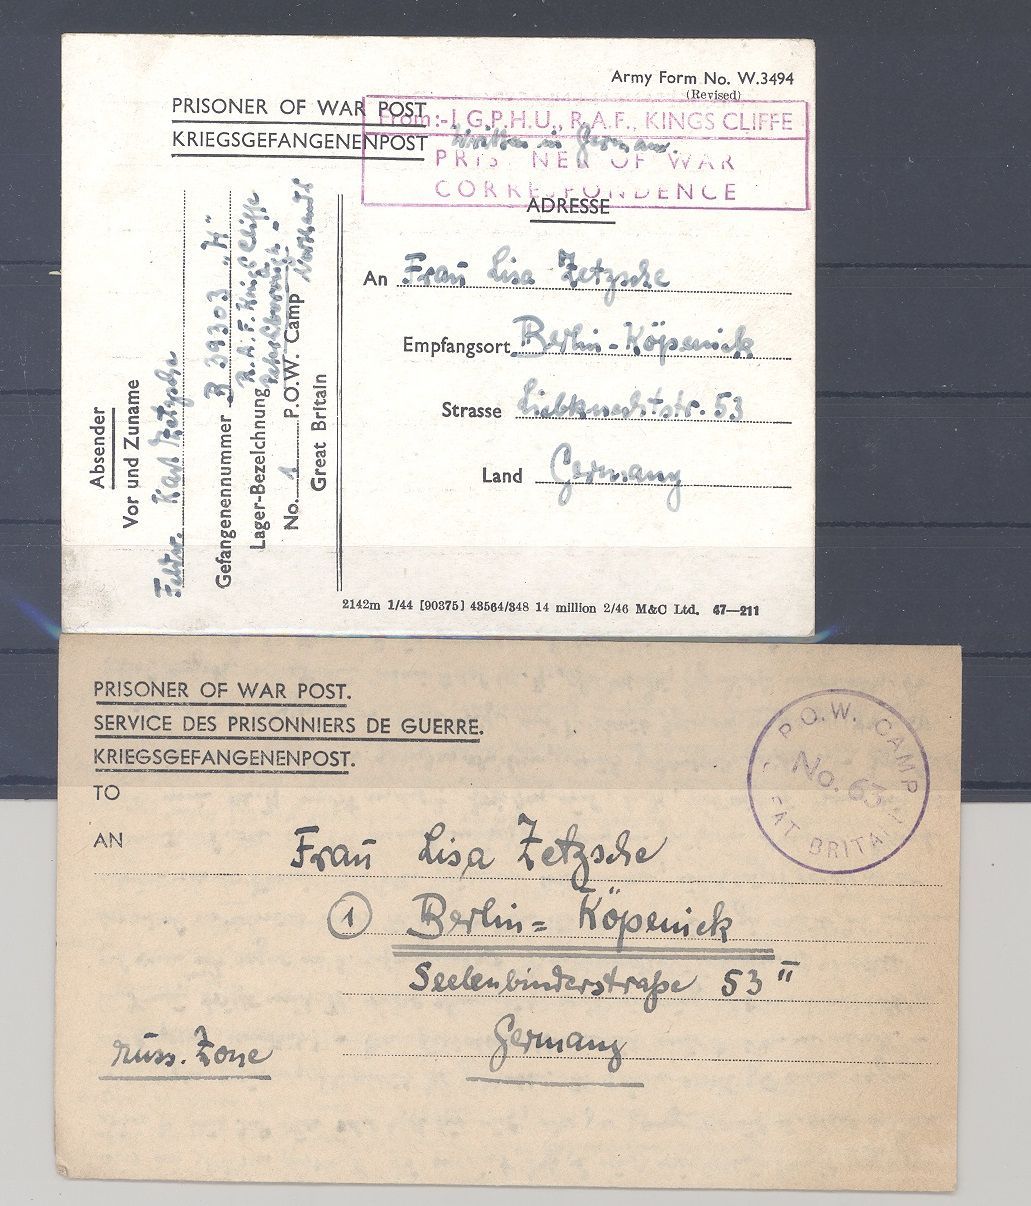 Army Form No. W.3494
(Revised)
PRISONER OF WAR POST
KRIEGSGEFANGENENPOST
From:-1 G.P.H.U., R.A.F., KINGS CLIFFE
Written in German.
PRIS NER OF WAR
CORRESPONDENCE
ADRESSE
An Frau Lisa Zetzsche
Empfangsort Berlin-Köpenick
Strasse Liebknechtstr. 53
Land Germany
Absender
Vor und Zuname
Feldw. Karl Zetzsche
Gefangenennummer B 39303 "H"
R.A.F. Kings Cliffe
Lager-Bezeichnung Peterborough
No. 1 P.O.W. Camp Northants
Great Britain
2142m 1/44 [90375] 43564/348 14 million 2/46 M&C Ltd. 47—211
PRISONER OF WAR POST.
SERVICE DES PRISONNIERS DE GUERRE.
KRIEGSGEFANGENENPOST.
P.O.W. CAMP
No. 63
EAT BRITAI
TO
AN
Frau Lisa Zetzsche
1 Berlin= Köpenick
Seelenbinderstraße 53 II
Germany
russ. Zone